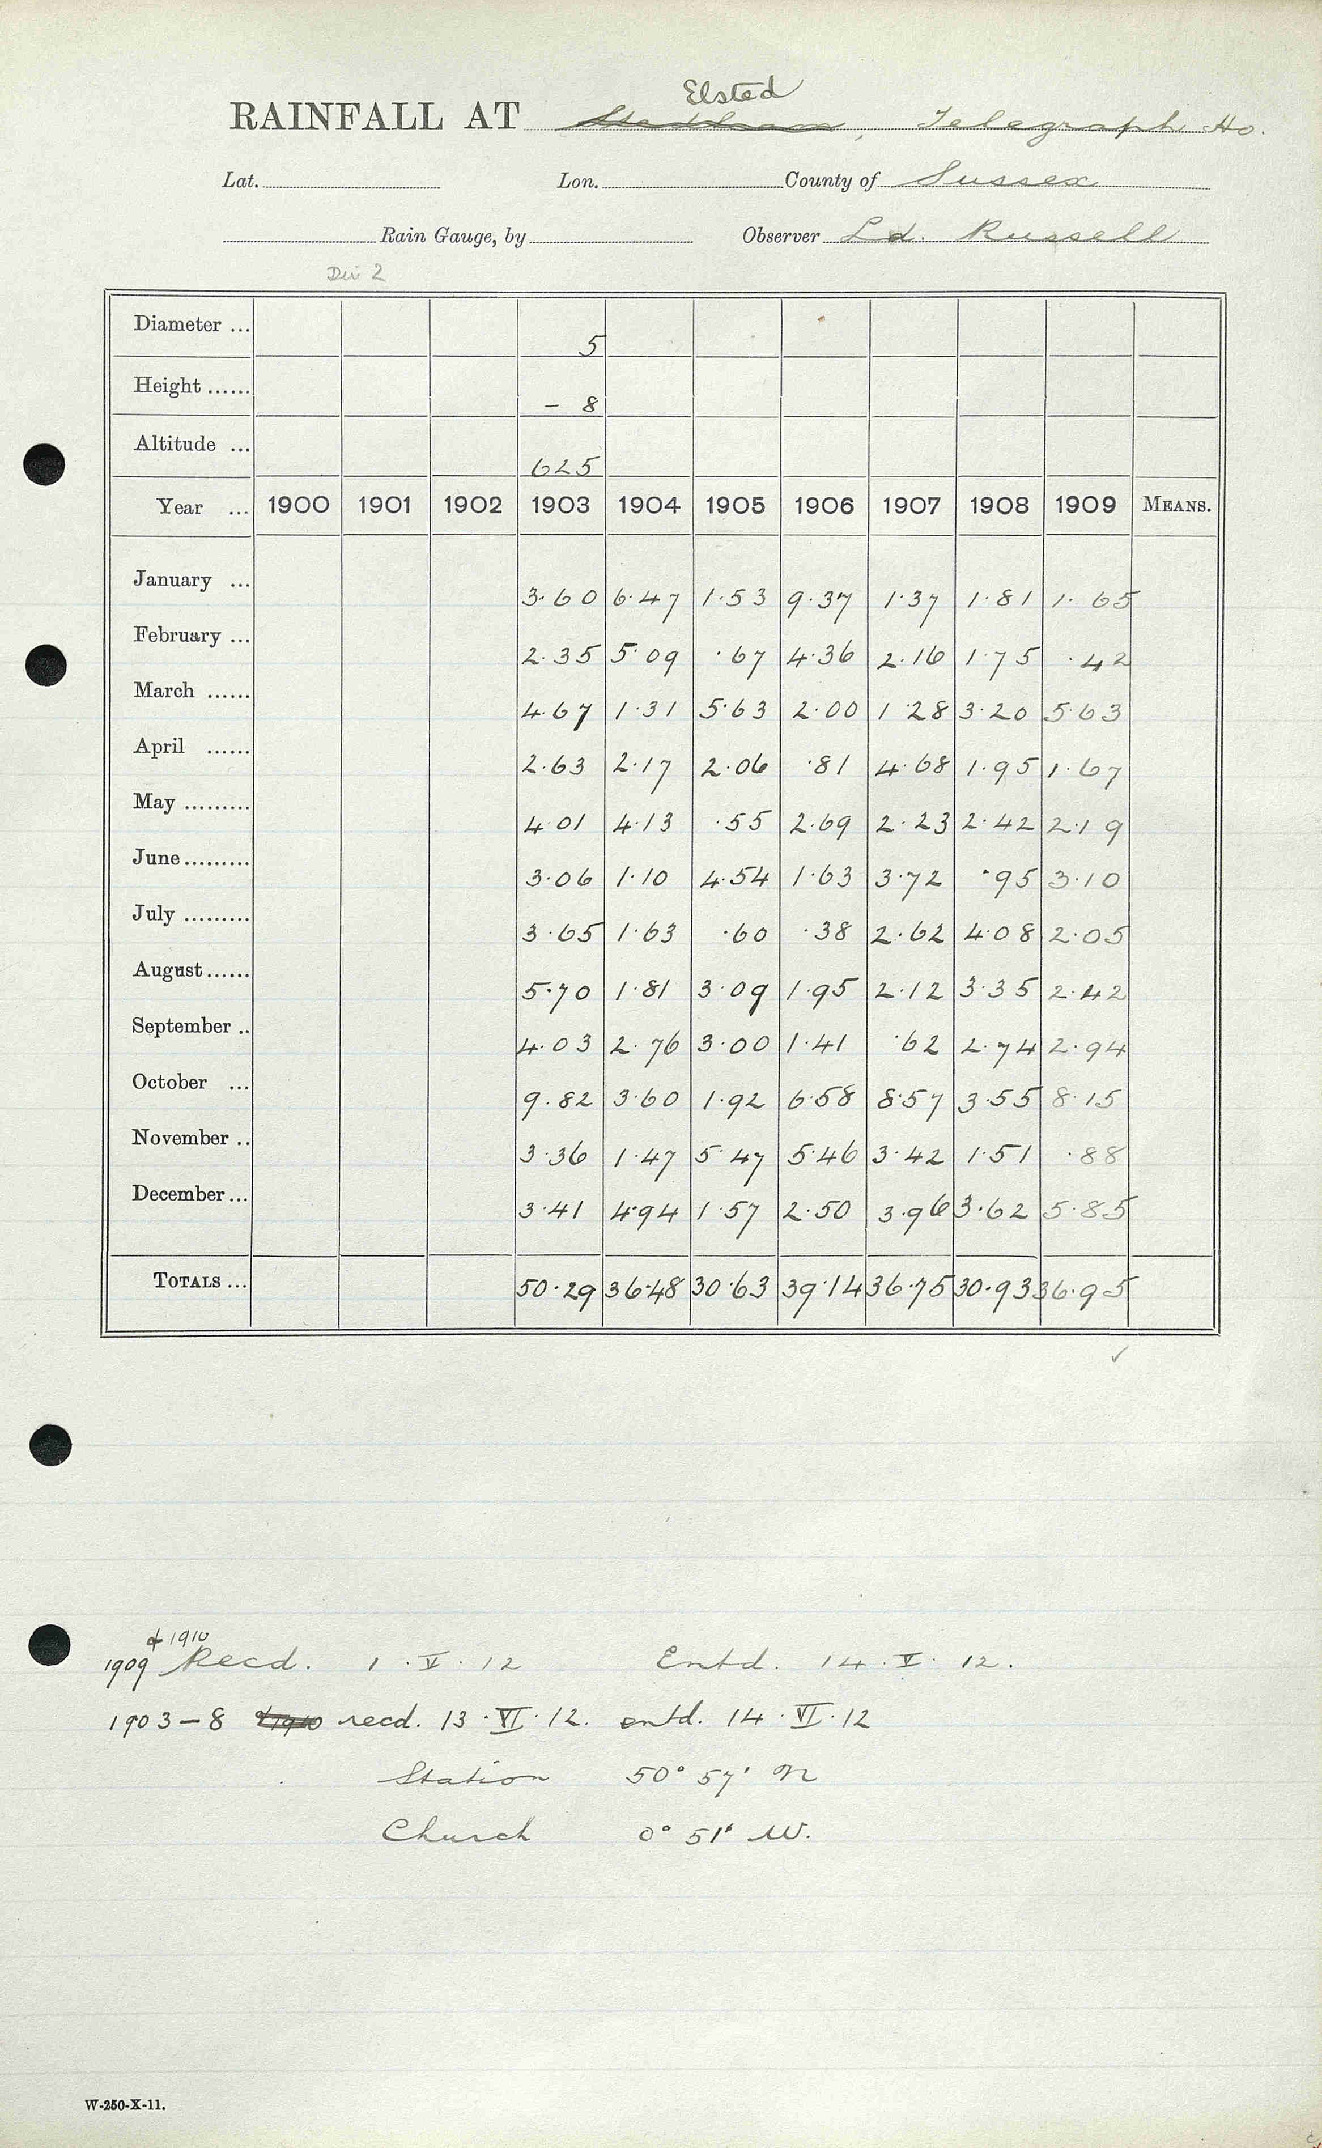 Elsted
RAINFALL AT Telegraph Ho.
Lat. Lon. County of Sussex
Rain Gauge, by Observer Ld. Russell
Div 2
Diameter ... 5
Height ...... - 8
Altitude ... 625
Year ... 1900 1901 1902 1903 1904 1905 1906 1907 1908 1909 MEANS.
January ... 3.60 6.47 1.53 9.37 1.37 1.81 1.65
February ... 2.35 5.09 .67 4.36 2.16 1.75 .42
March ...... 4.67 1.31 5.63 2.00 1.28 3.20 5.63
April ...... 2.63 2.17 2.06 .81 4.68 1.95 1.67
May ......... 4.01 4.13 .55 2.69 2.23 2.42 2.19
June ......... 3.06 1.10 4.54 1.63 3.72 .95 3.10
July ......... 3.65 1.63 .60 .38 2.62 4.08 2.05
August ...... 5.70 1.81 3.09 1.95 2.12 3.35 2.42
September .. 4.03 2.76 3.00 1.41 .62 2.74 2.94
October ... 9.82 3.60 1.92 6.58 8.57 3.55 8.15
November .. 3.36 1.47 5.47 5.46 3.42 1.51 .88
December ... 3.41 4.94 1.57 2.50 3.96 3.62 5.85
TOTALS ... 50.29 36.48 30.63 39.14 36.75 30.93 36.95
& 1910
1909 Recd. 1.V.12 Entd. 14.V.12.
1903-8 &1910 recd. 13.VI.12. entd. 14.VI.12
Station 50° 57' N
Church 0° 51' W.
W-250-X-11.